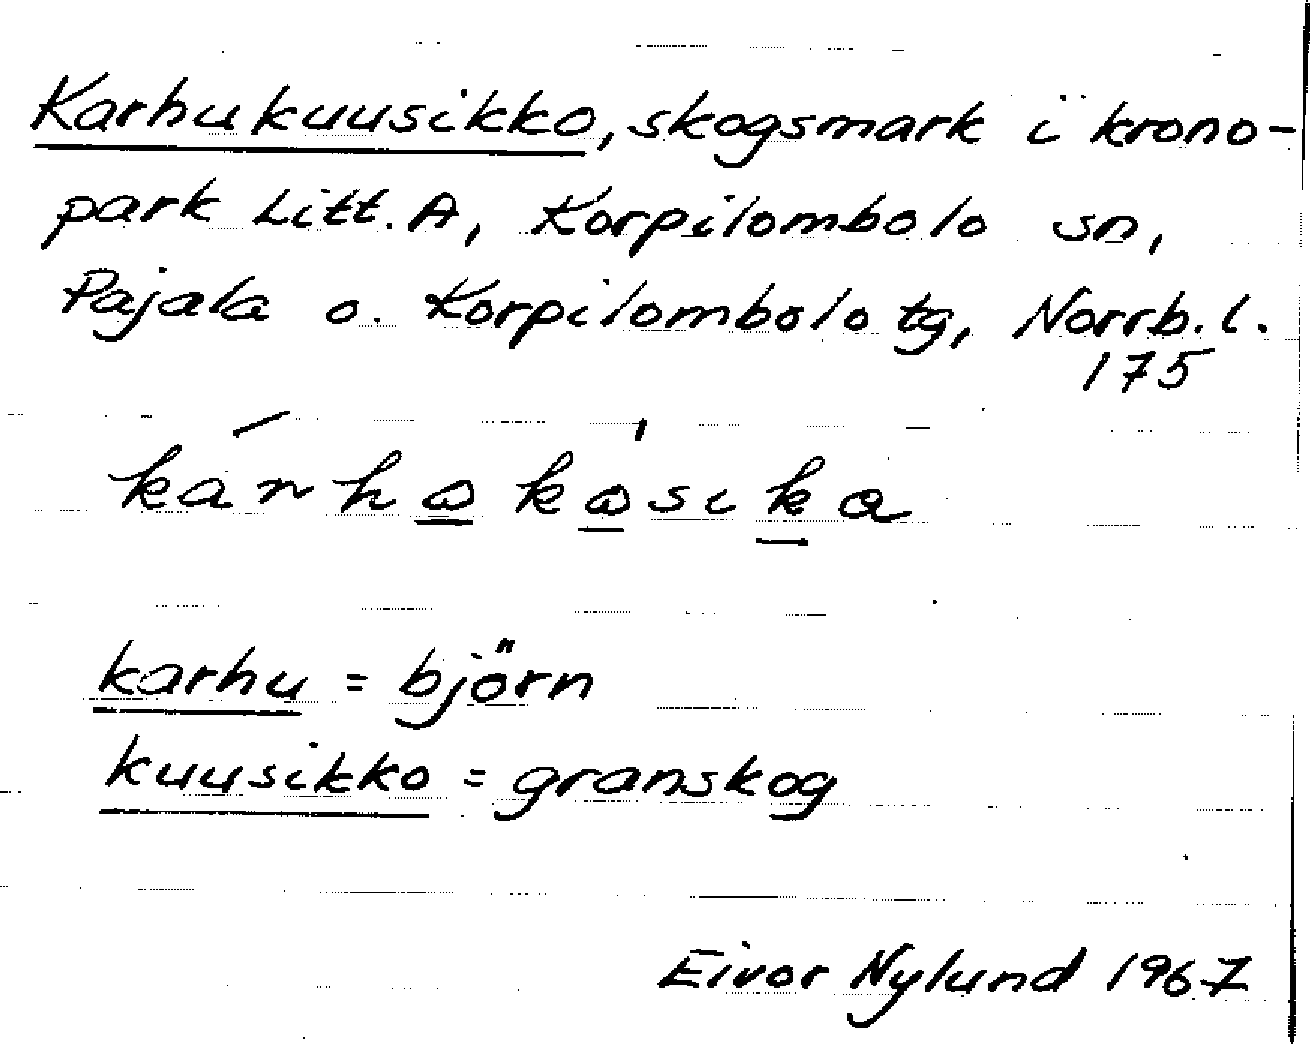 Karhukuusikko, skogsmark i krono-
park Litt. A, Korpilombolo sn,
Pajala o. Korpilombolo tg, Norrb. l.
175
karhu = björn
kuusikko = granskog
Eivor Nylund 1967